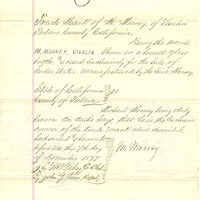 Trade Mark of M. Morney of Visalia
Tulare County California.
Being the words
M. MORNEY VISALIA blown on a small glass
bottle, & used exclusively for the sale of
Soda Water manufactured by the said Morney
State of California
County of Tulare } SS
Michael Morney being duly
sworn on oath says that he is the exclusive
owner of the trade mark above described
Subscribed & sworn to
before me this 7th day
of November 1877
M. Morney